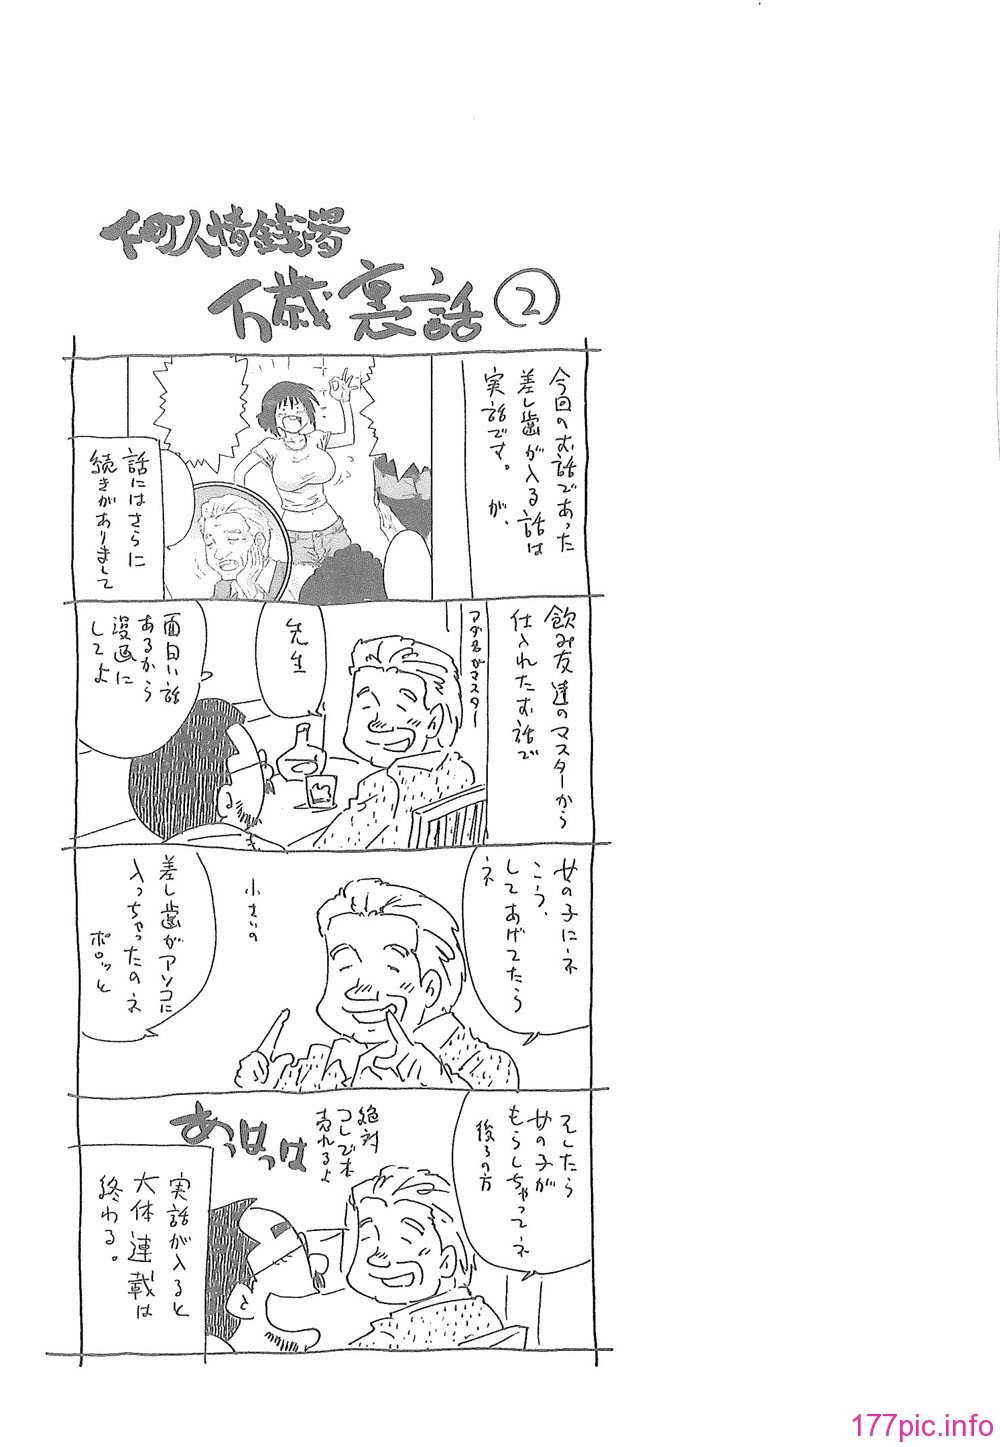 下町人情銭湯
万歳裏話②
今回のお話であった
差し歯が入る話は
実話です。が、
話にはさらに
続きがありまして
飲み友達のマスターから
仕入れたお話で
アダ名がマスター
先生
面白い話
あるから
漫画に
してよ
女の子にネ
こう、
してあげてたら
ネ
小さいの
差し歯がアソコに
入っちゃったのネ
ポロッと
そしたら
女の子が
もらしちゃってネ
後ろの方
絶対
コレで本
売れるよ
あっはっは
実話が入ると
大体連載は
終わる。
177pic.info